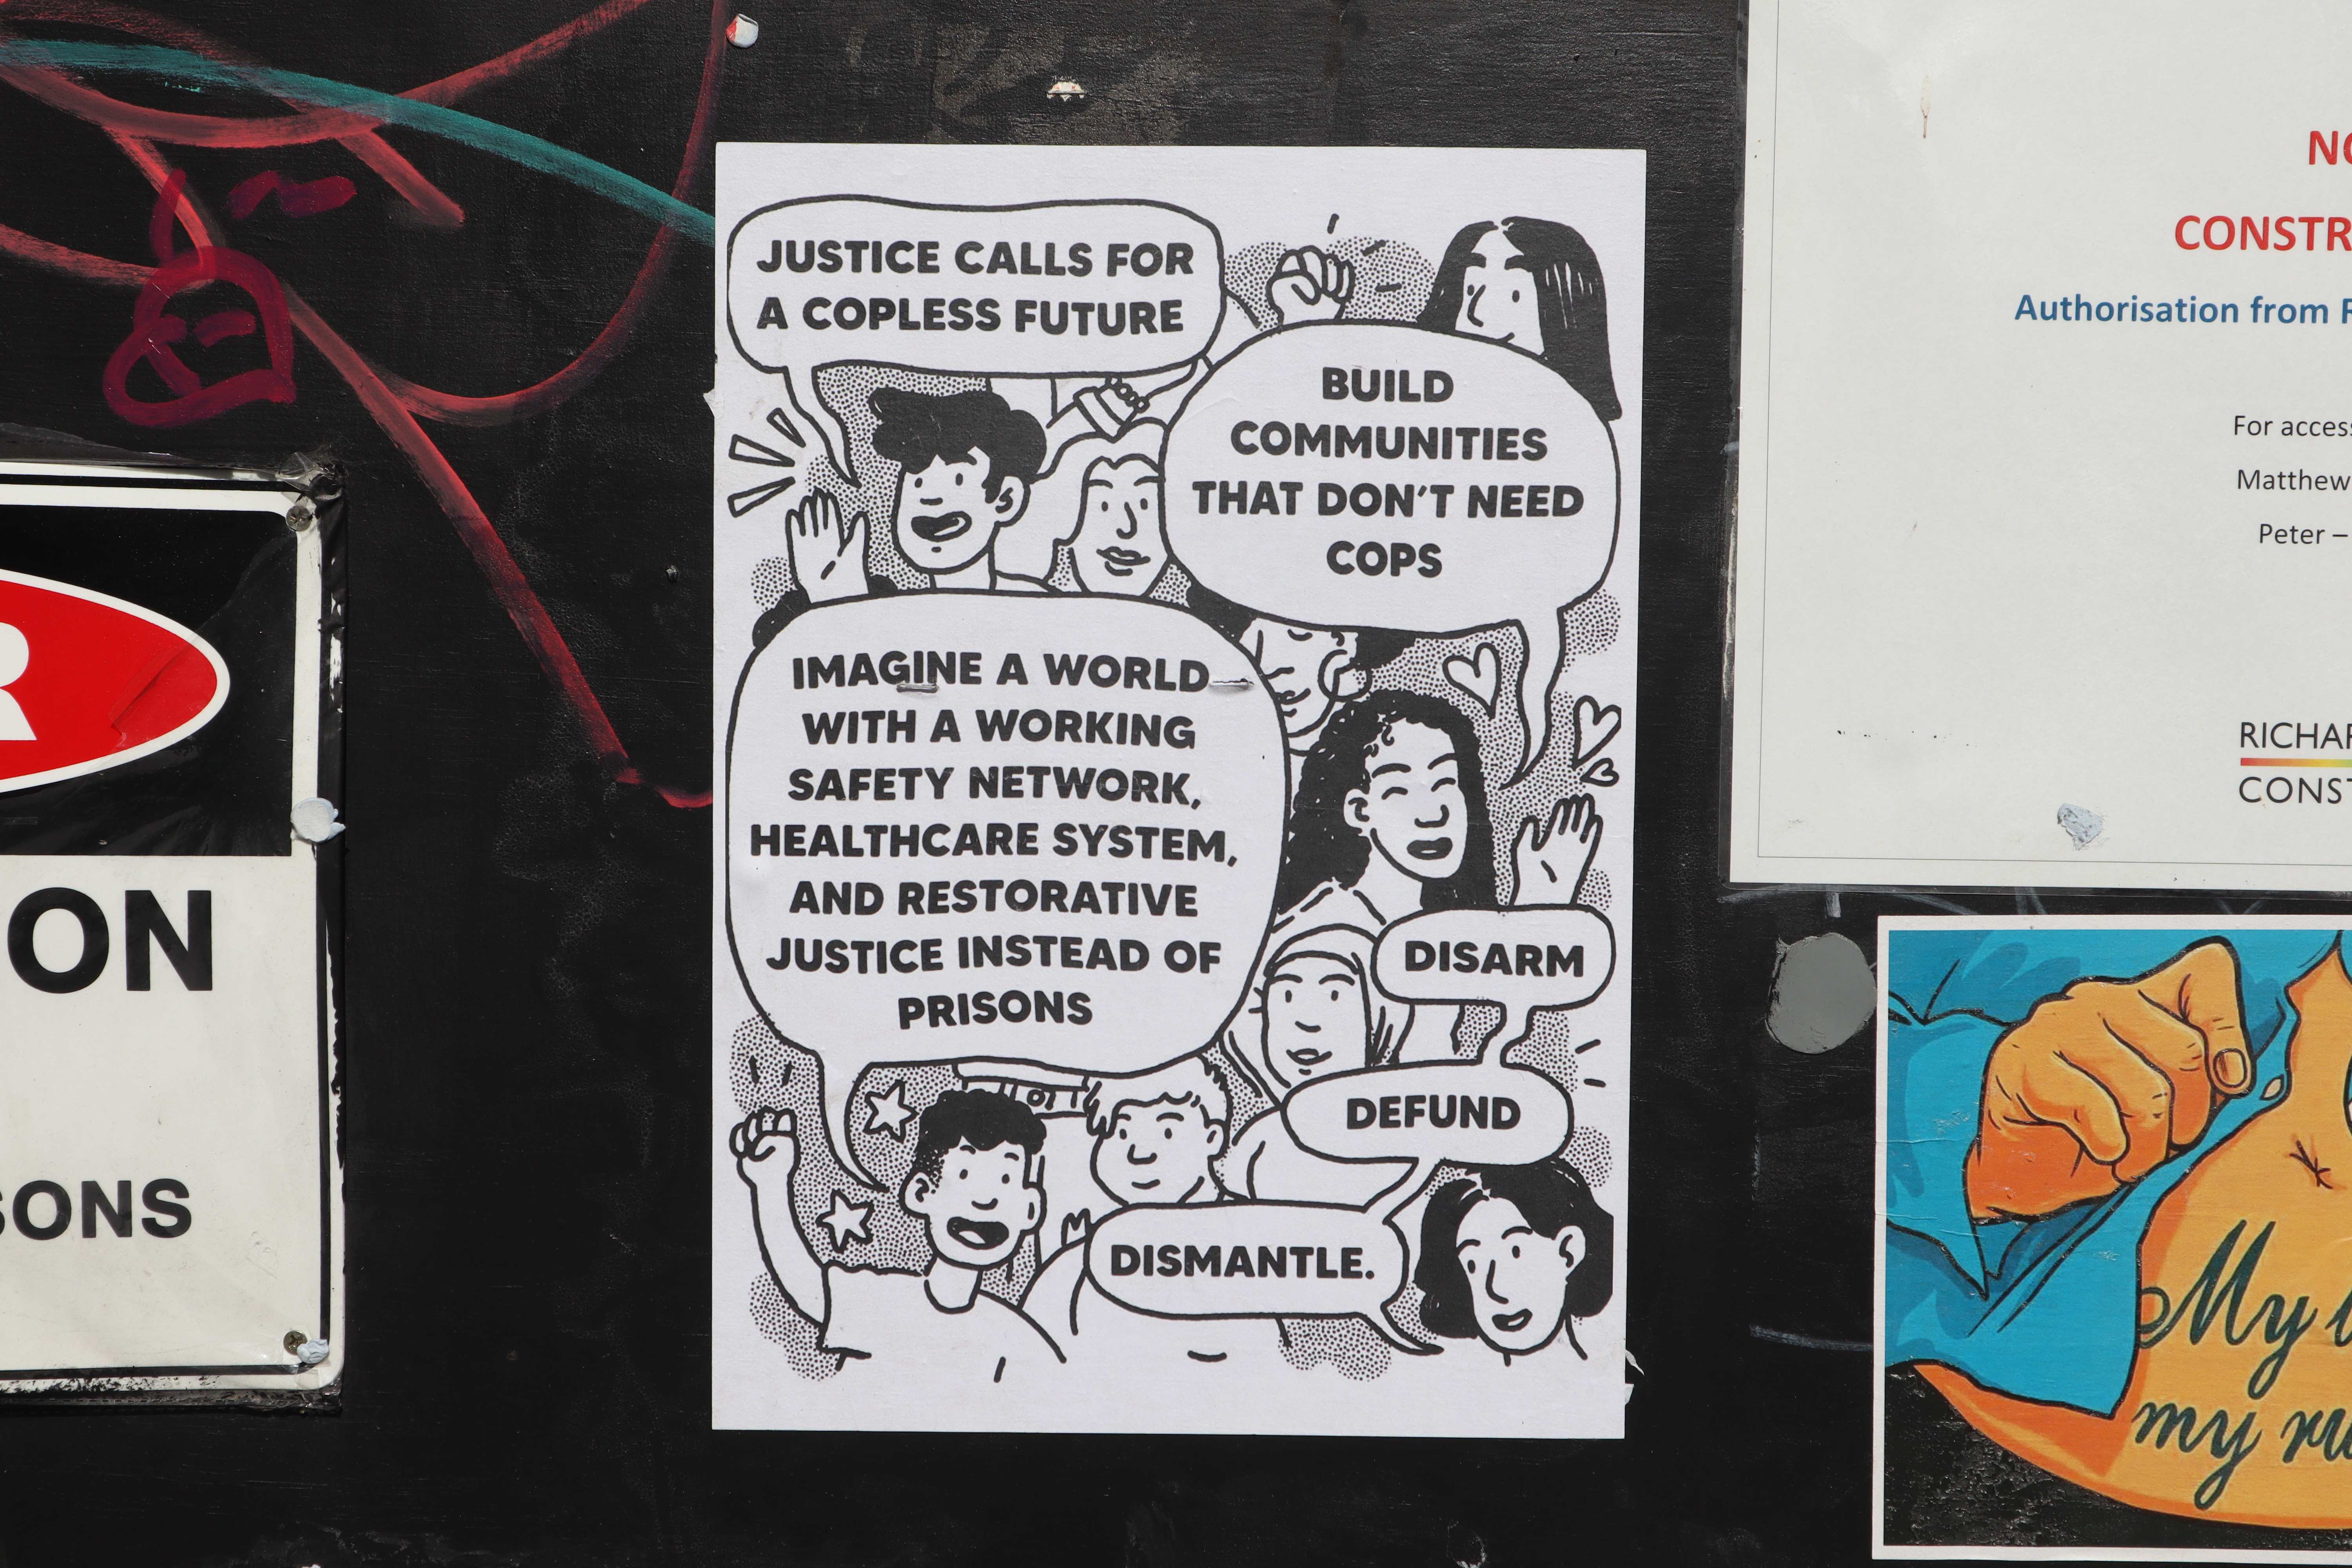 JUSTICE CALLS FOR
A COPLESS FUTURE
BUILD
COMMUNITIES
THAT DON'T NEED
COPS
IMAGINE A WORLD
WITH A WORKING
SAFETY NETWORK,
HEALTHCARE SYSTEM,
AND RESTORATIVE
JUSTICE INSTEAD OF
PRISONS
DISARM
DEFUND
DISMANTLE.
R
ON
SONS
NO
CONSTR
Authorisation from R
For access
Matthew
Peter –
RICHAR
CONST
My
my ru